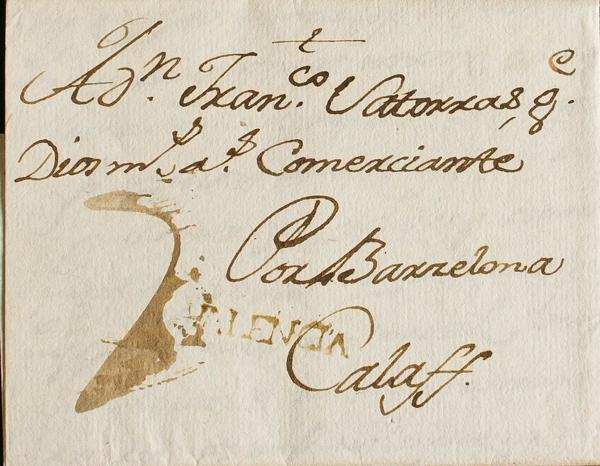 t
A Dn. Franco. Vatorras, q e.
Dios ms as. Comerciante
Por Barzelona
VALENCIA
Calaff.